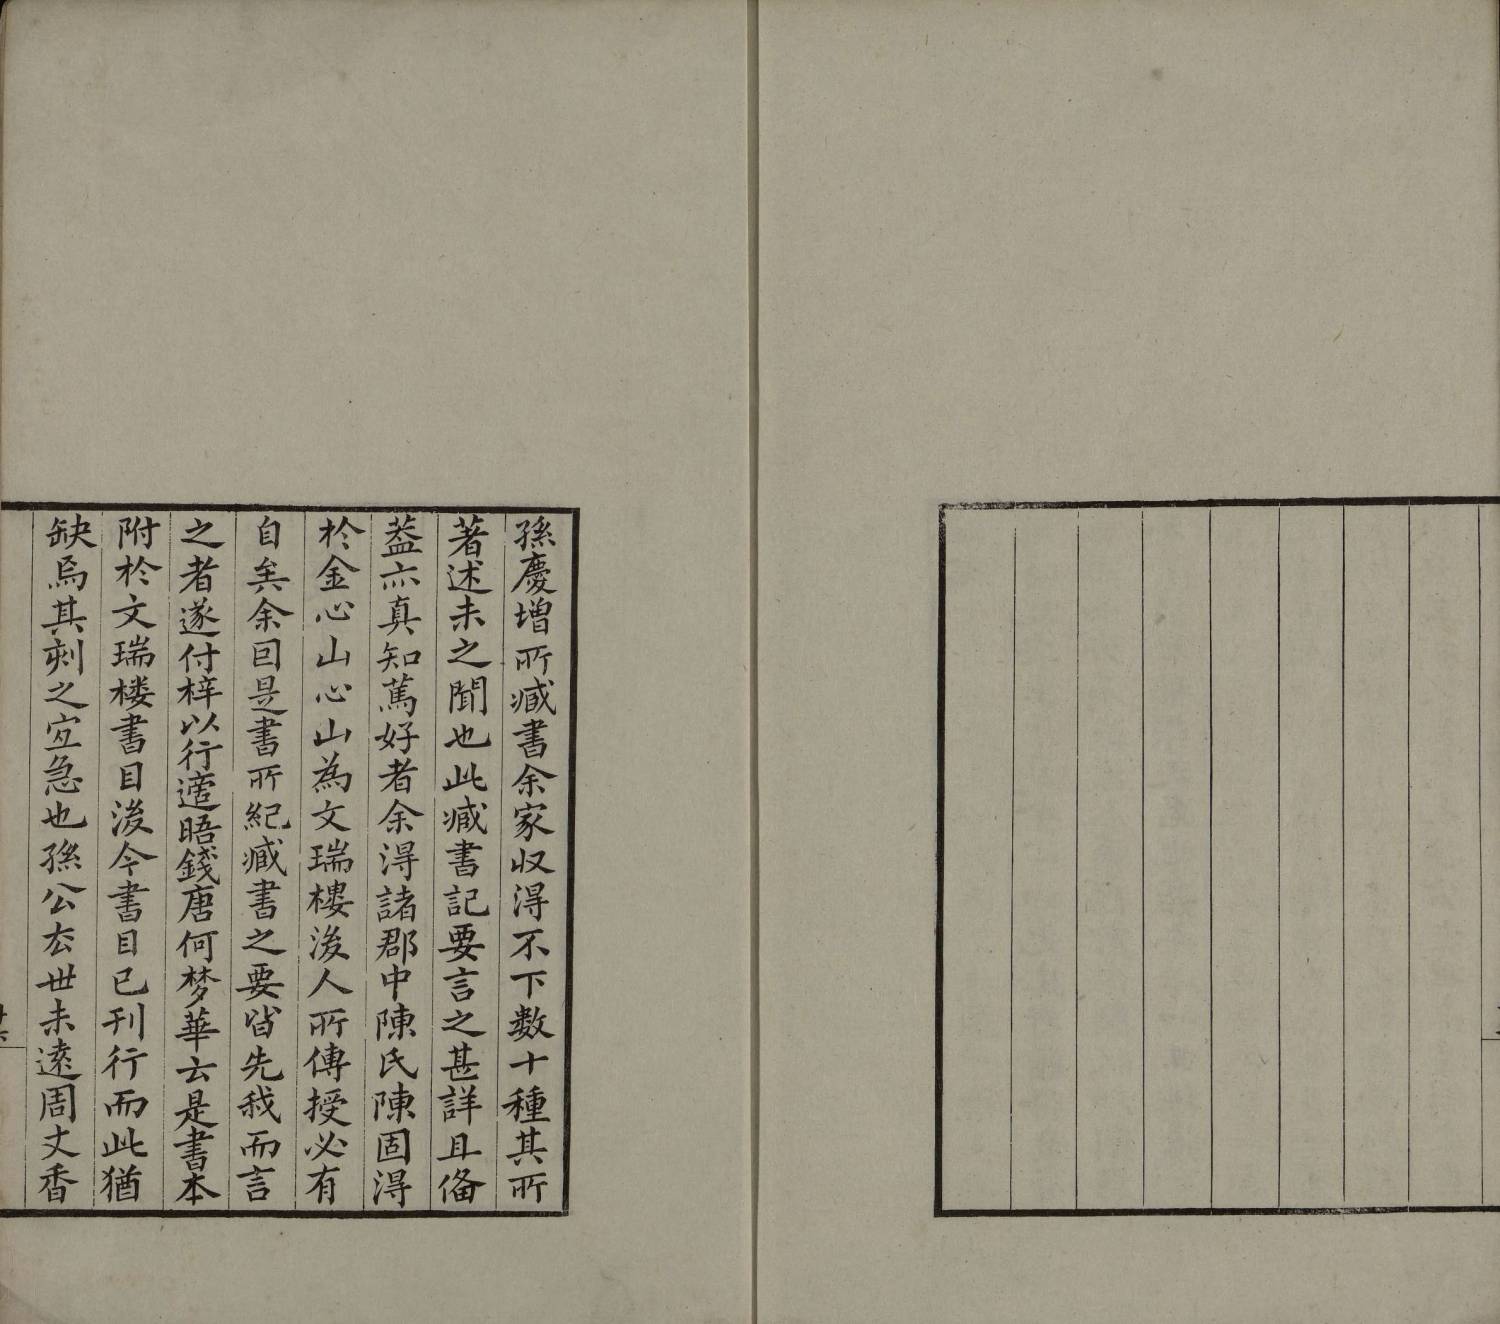 孫慶增所臧書余家収得不下数十種其所
著述未之聞也此臧書記要言之甚詳且俻
葢亦真知篤好者余淂諸郡中陳氏陳固淂
於金心山心山為文瑞樓後人所傳授必有
自矣余囙是書所紀臧書之要皆先我而言
之者遂付梓以行適晤錢唐何梦華云是書本
附於文瑞楼書目後今書目已刊行而此猶
缺焉其刻之宜急也孫公去世未遠周丈香